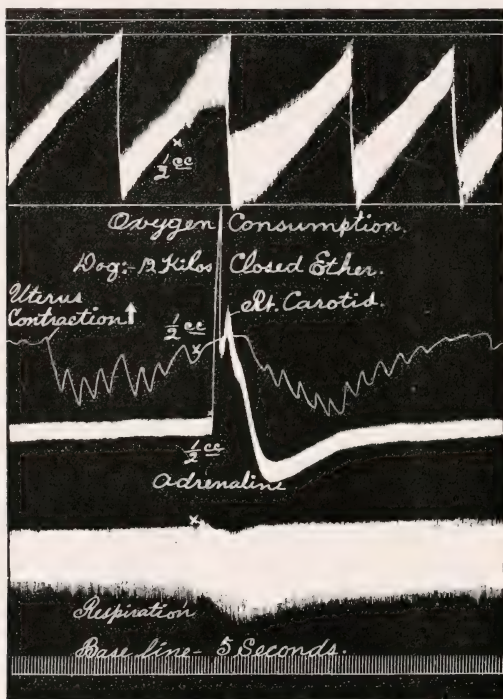 ½ cc
Oxygen Consumption.
Dog:- 12 Kilos Closed Ether.
Uterus
Contraction
Rt. Carotid.
½ cc
½ cc
Adrenaline
Respiration
Base line - 5 Seconds.